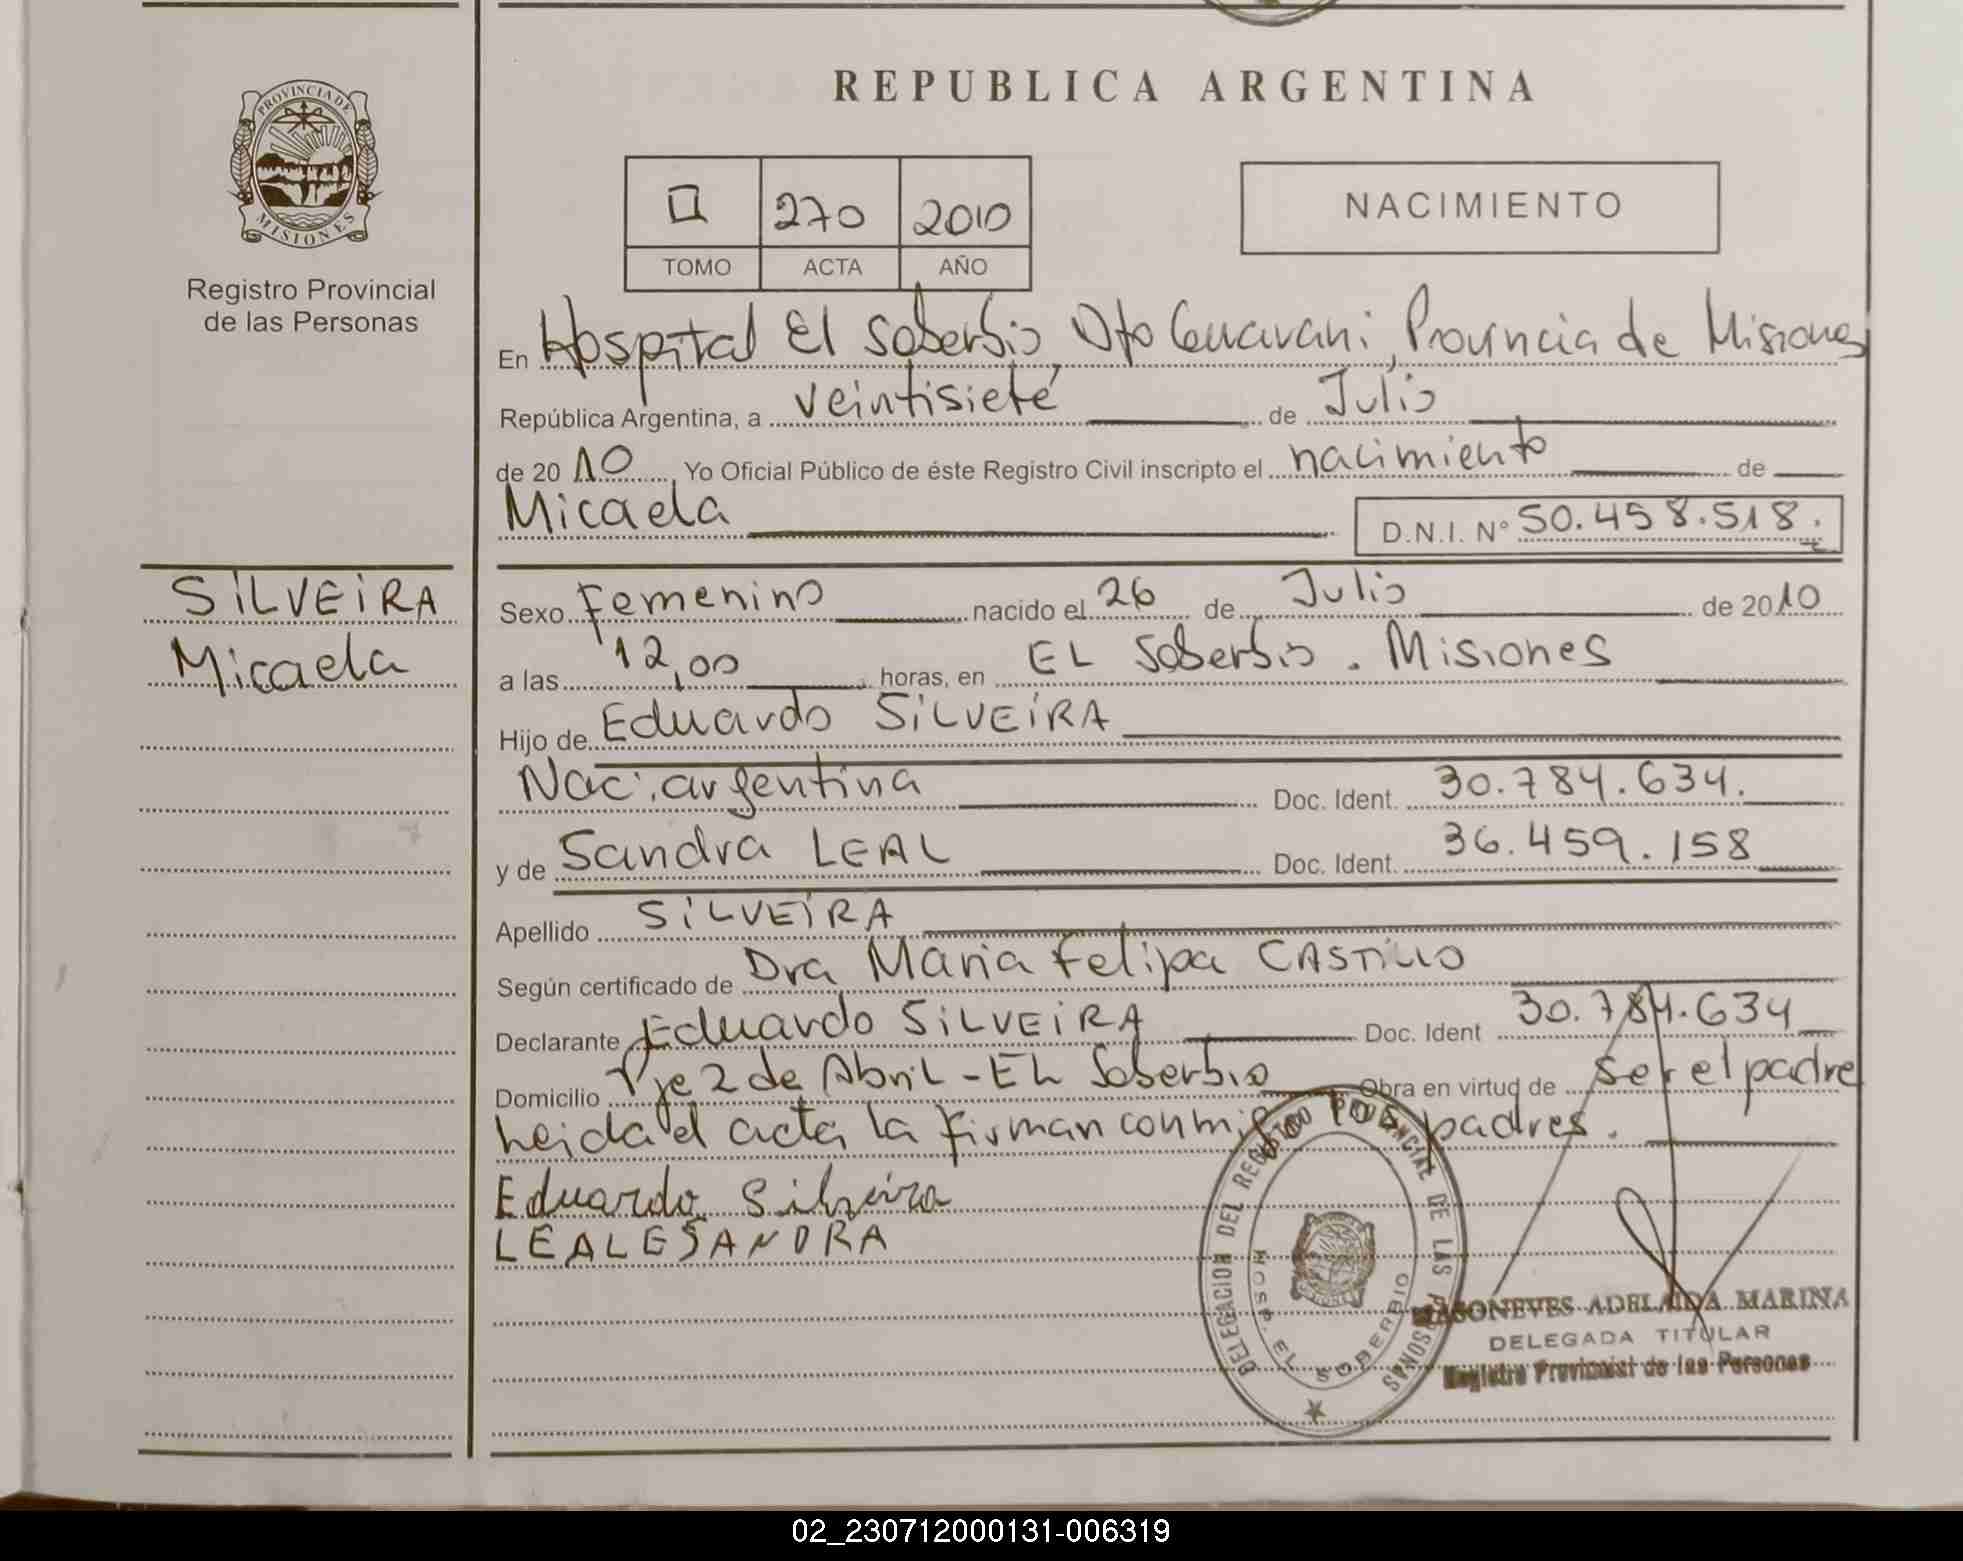 REPUBLICA ARGENTINA
PROVINCIA DE
MISIONES
Registro Provincial
de las Personas
270 2010
TOMO ACTA AÑO
NACIMIENTO
En Hospital El Soberbio, Dto Guarani, Provincia de Misiones
República Argentina, a veintisiete de Julio
de 2010 Yo Oficial Público de éste Registro Civil inscripto el nacimiento de
Micaela D.N.I. N° 50.458.518.
SiLVEiRA
Micaela
Sexo Femenino nacido el 26 de Julio de 2010
a las 12,00 horas, en EL Soberbio. Misiones
Hijo de Eduardo SiLVEiRA
Nac. argentina Doc. Ident. 30.784.634.
y de Sandra LEAL Doc. Ident. 36.459.158
Apellido SiLVEiRA
Según certificado de Dra Maria Felipa CASTiLLO
Declarante Eduardo SiLVEiRA Doc. Ident 30.784.634
Domicilio Pje 2 de Abril - EL Soberbio Obra en virtud de ser el padre
Leida el acta, la firman conmigo los padres.
Eduardo Silveira
LEAL SANDRA
DELEGACION DEL REGISTRO PROVINCIAL DE LAS PERSONAS
HOSP. EL SOBERBIO
ADELAIDA MARINA
DELEGADA TITULAR
Registro Provincial de las Personas
02_230712000131-006319